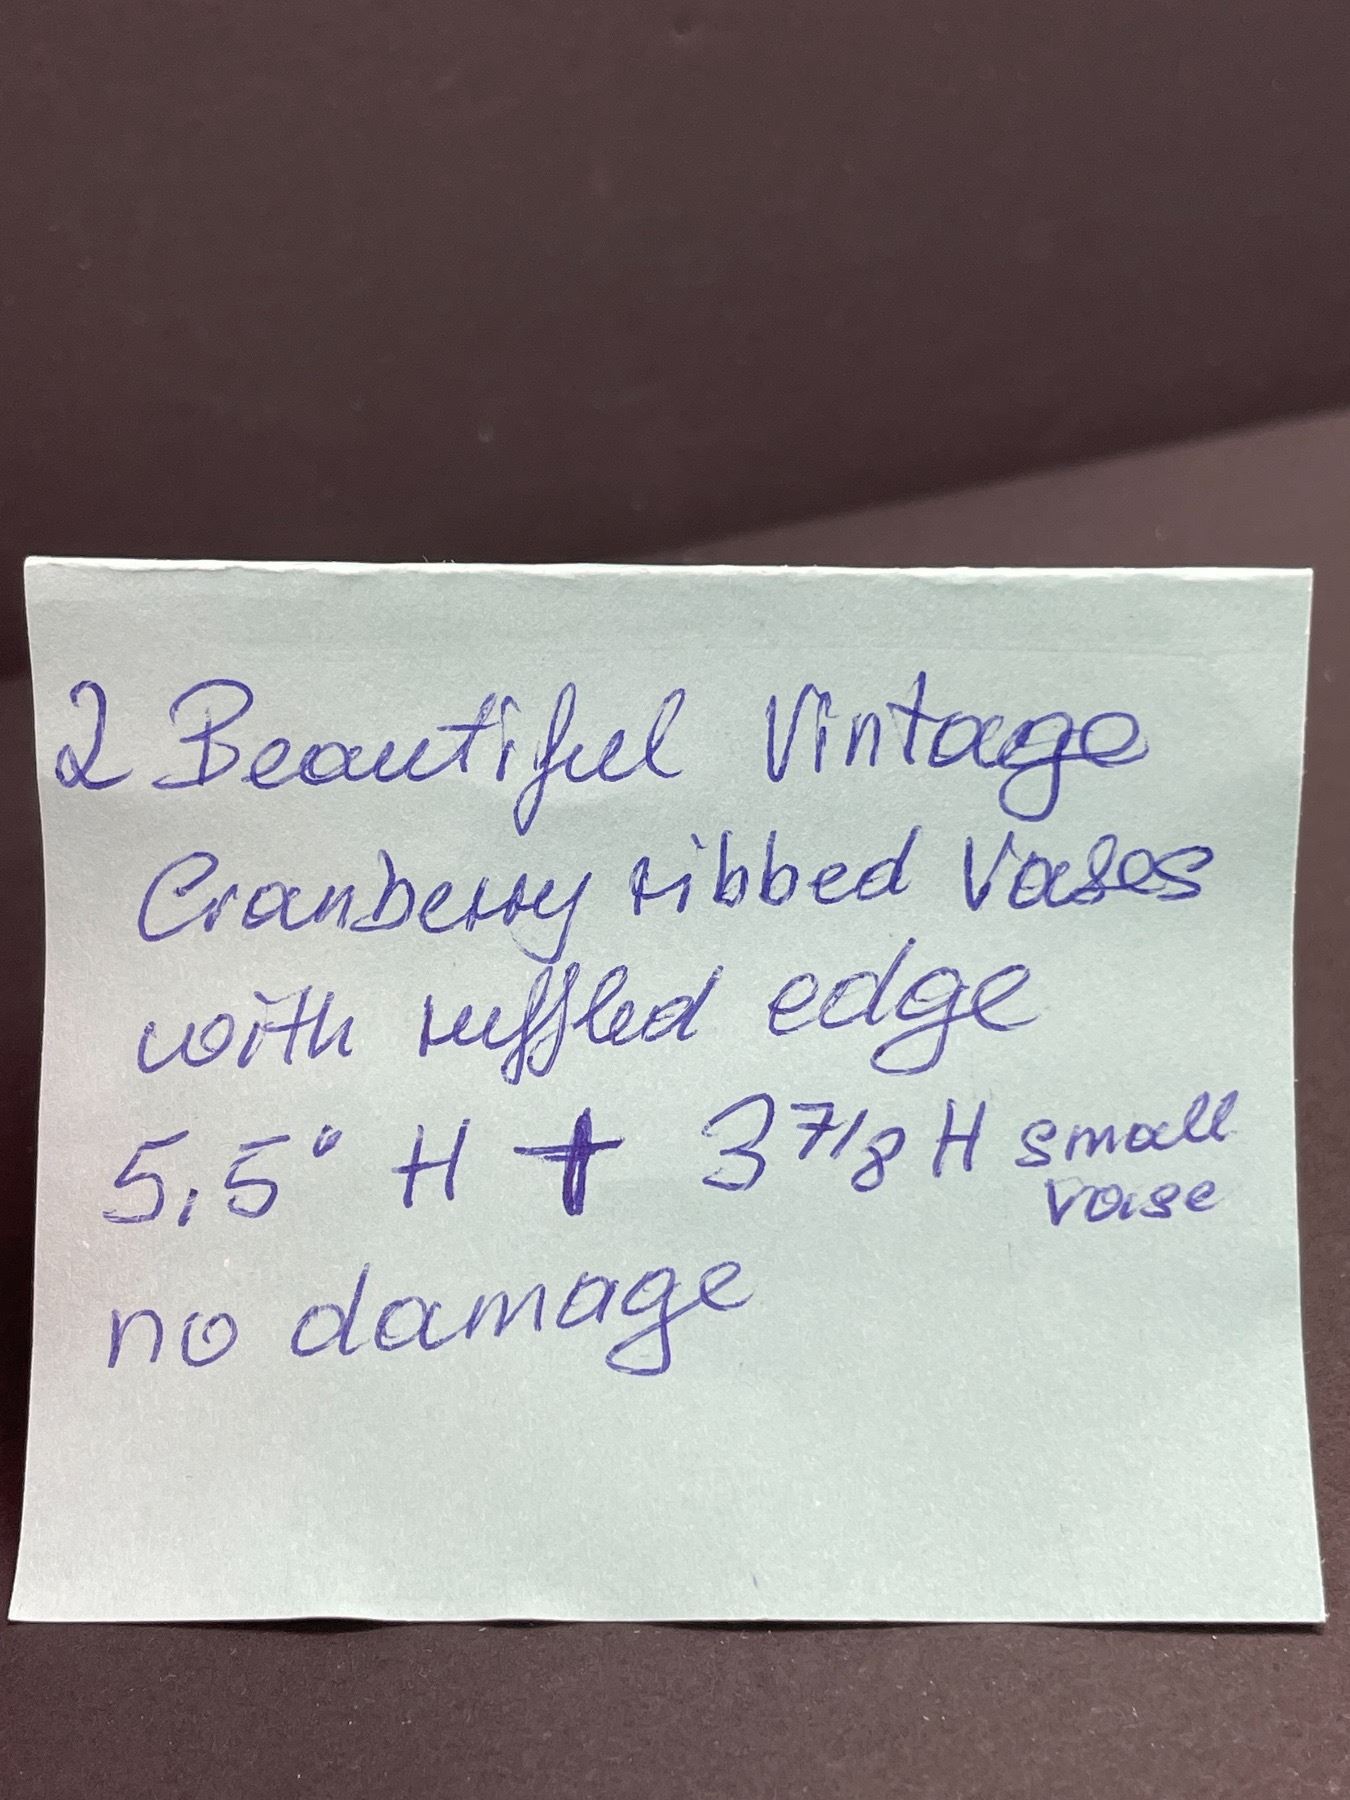 2 Beautiful Vintage
Cranberry ribbed Vases
with ruffled edge
5,5" H + 3 7/8 H small vase
no damage